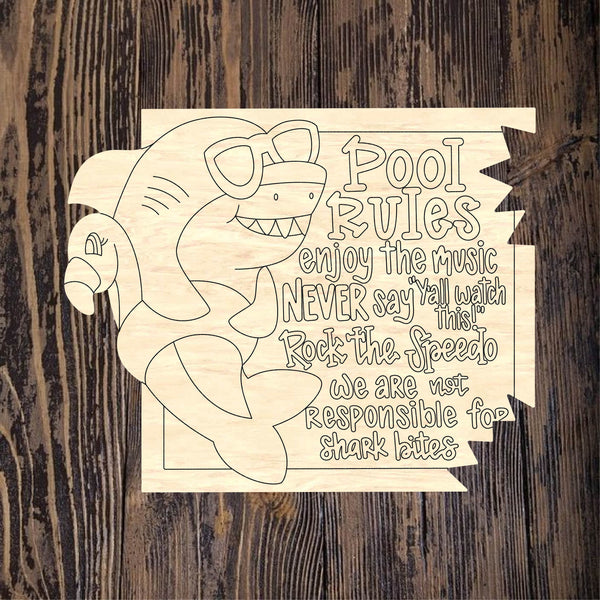 Pool
Rules
enjoy the music
NEVER say "Y'all watch
this!"
Rock the Speedo
we are not
responsible for
shark bites